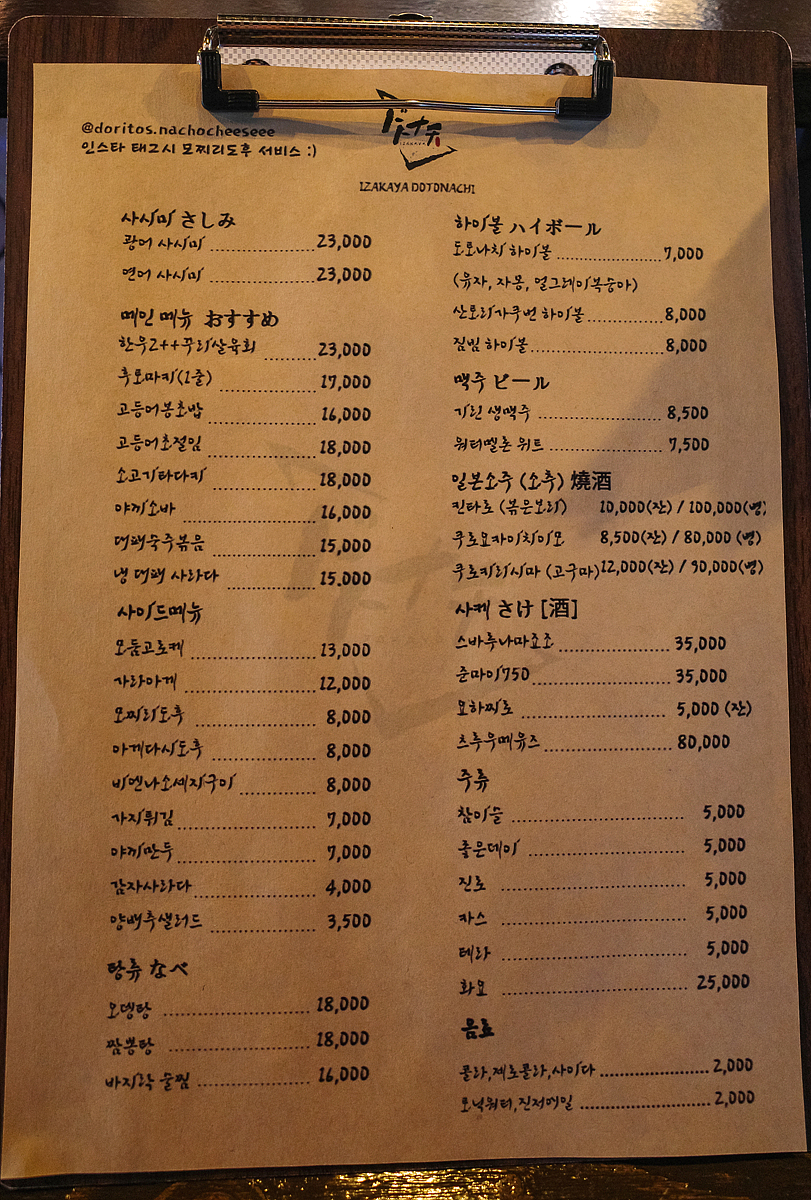 @doritos.nachocheeseee
인스타 태그시 모찌리도후 서비스 :)
IZAKAYA
IZAKAYA DOTONACHI
사시미 さしみ
광어 사시미 23,000
연어 사시미 23,000
메인 메뉴 おすすめ
한우2++꾸리살육회 23,000
후토마키(1줄) 17,000
고등어봉초밥 16,000
고등어초절임 18,000
소고기타다키 18,000
야끼소바 16,000
대패숙주볶음 15,000
냉 대패 사라다 15.000
사이드메뉴
모둠고로케 13,000
가라아게 12,000
모찌리도후 8,000
아게다시도후 8,000
비엔나소세지구이 8,000
가지튀김 7,000
야끼만두 7,000
감자사라다 4,000
양배추샐러드 3,500
탕류 なべ
오뎅탕 18,000
짬뽕탕 18,000
바지락 술찜 16,000
하이볼 ハイボール
도토나치 하이볼 7,000
(유자, 자몽, 얼그레이복숭아)
산토리가쿠빈 하이볼 8,000
짐빔 하이볼 8,000
맥주 ビール
기린 생맥주 8,500
워터멜론 위트 7,500
일본소주 (쇼추) 燒酒
킨타로 (볶은보리) 10,000(잔) / 100,000(병)
쿠로요카이치이모 8,500(잔) / 80,000 (병)
쿠로키리시마 (고구마) 12,000(잔) / 90,000(병)
사케 さけ [酒]
스바루나마쵸조 35,000
준마이750 35,000
모하찌로 5,000 (잔)
츠루우메유즈 80,000
주류
참이슬 5,000
좋은데이 5,000
진로 5,000
카스 5,000
테라 5,000
화요 25,000
음료
콜라,제로콜라,사이다 2,000
토닉워터,진저에일 2,000